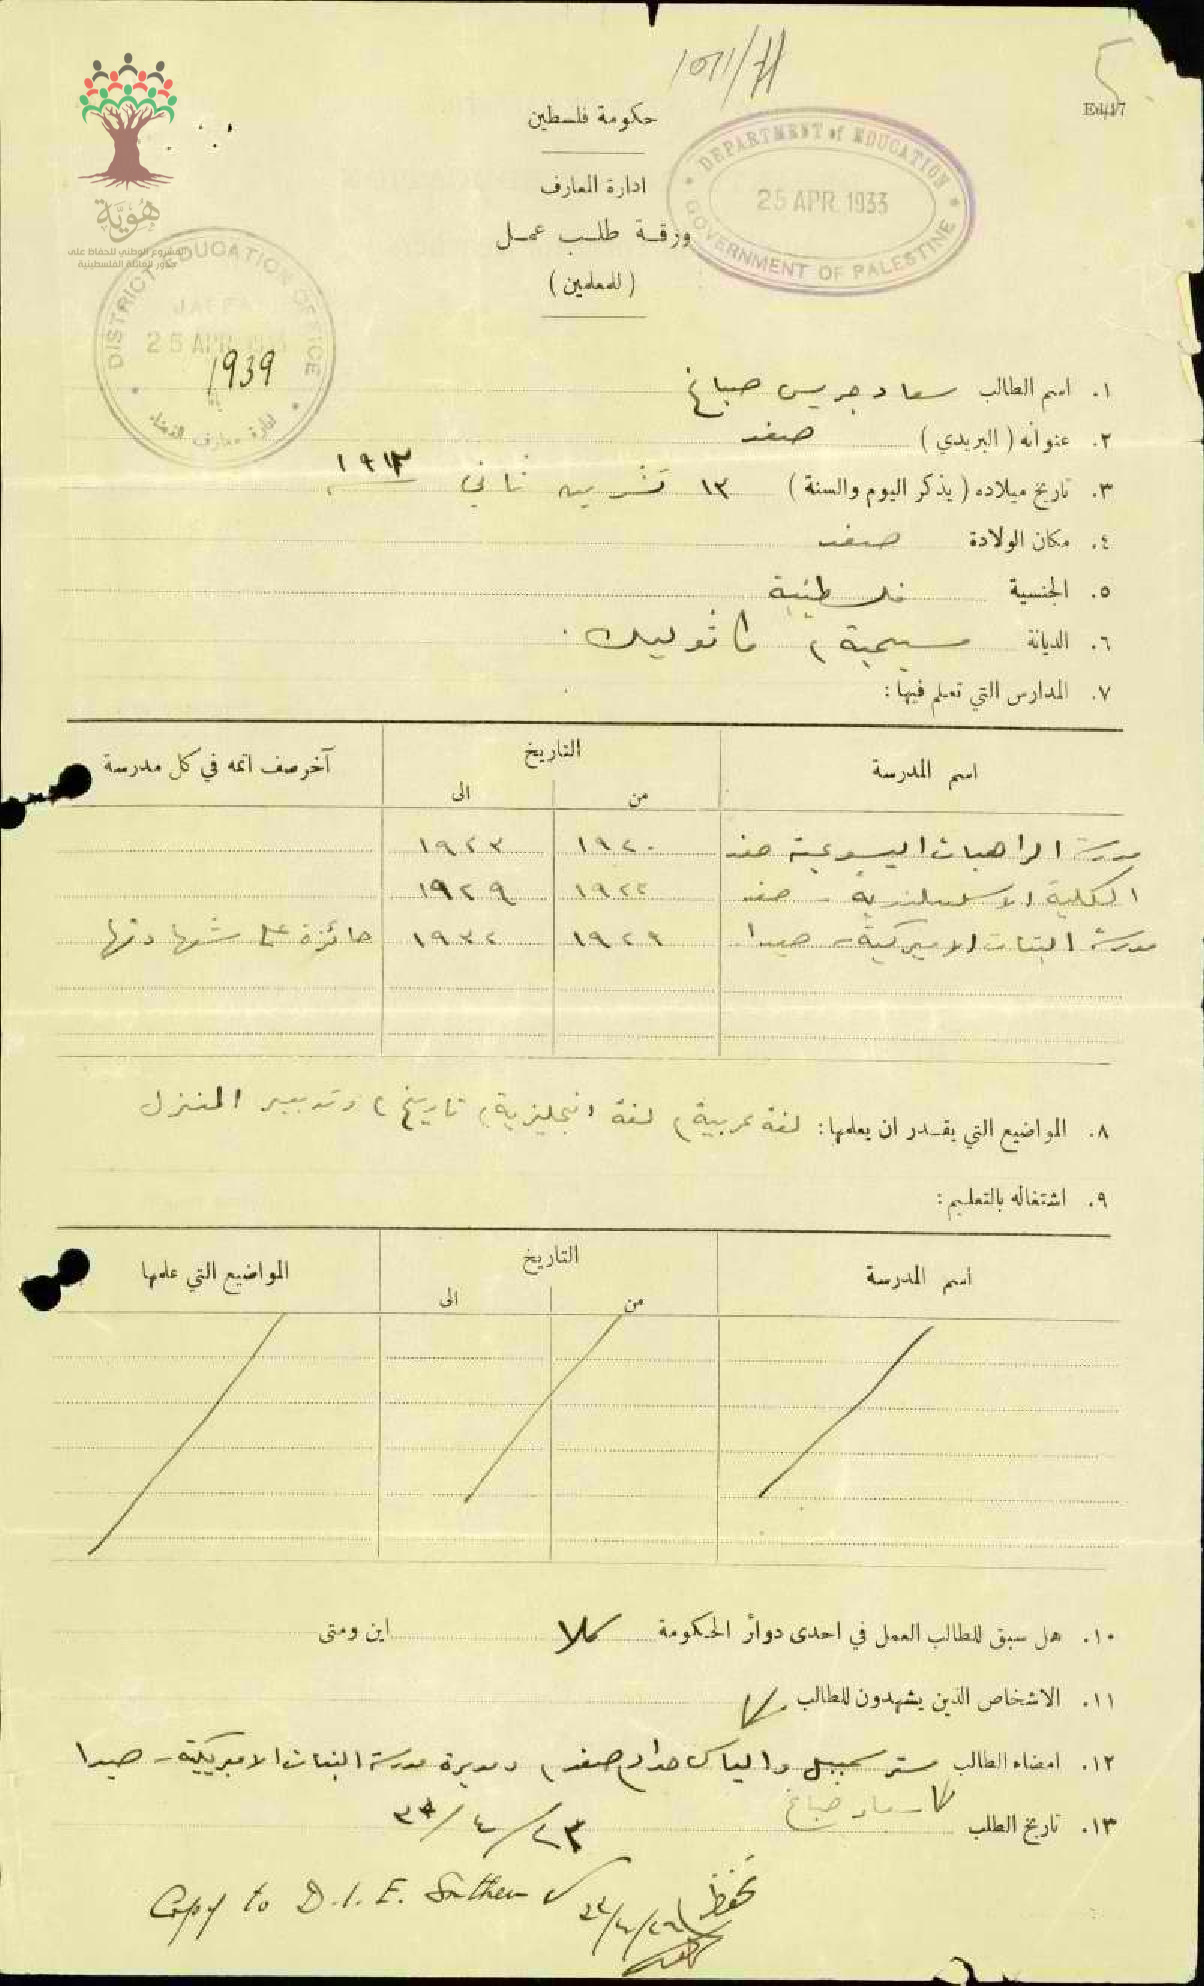 ١٥٦١/٢٢
Ed/17
حكومة فلسطين
ادارة المعارف
ورقة طلب عمل
(للمعلمين)
DEPARTMENT of EDUCATION
25 APR 1933
GOVERNMENT OF PALESTINE
هُوِيَّة
المشروع الوطني للحفاظ على
جذور العائلة الفلسطينية
DISTRICT EDUCATION OFFICE
JAFFA
25 APR 1933
1939
ادارة معارف القضاء
١. اسم الطالب سعاد جريس صباغ
٢. عنوانه (البريدي) صفد
٣. تاريخ ميلاده (يذكر اليوم والسنة) ١٣ تشرين ثاني ١٩١٣
٤. مكان الولادة صفد
٥. الجنسية فلسطينية
٦. الديانة مسيحية، كاثوليك.
٧. المدارس التي تعلم فيها:
اسم المدرسة التاريخ آخر صف اتمه في كل مدرسة
من الى
مدرسة الراهبات اليسوعية صفد ١٩٢٠ ١٩٢٣
الكلية الاسكتلندية - صفد ١٩٢٣ ١٩٢٩
مدرسة البنات الاميركية - صيدا ١٩٢٩ ١٩٣٢ حائزة على شهادتها
٨. المواضيع التي يقدر ان يعلمها: لغة عربية، لغة انجليزية، تاريخ، وتدبير المنزل
٩. اشتغاله بالتعليم:
اسم المدرسة التاريخ المواضيع التي علمها
من الى
١٠. هل سبق للطالب العمل في احدى دوائر الحكومة كلا اين ومتى
١١. الاشخاص الذين يشهدون للطالب
١٢. امضاء الطالب مستر سمبل والياس حداد صفد، ومديرة مدرسة البنات الاميريكية - صيدا
سعاد صباغ
١٣. تاريخ الطلب ٢٣/٤/٣٣
Copy to D.I.E. Southern
تحفظ
٢٦/٤/٣٣